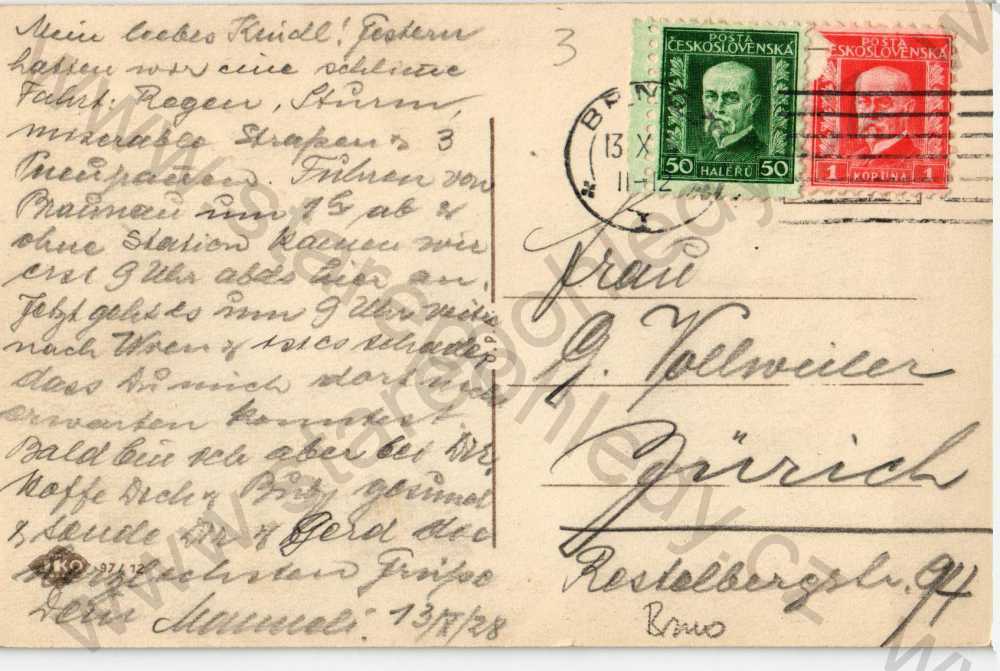 Mein liebes Kindl! Gestern
hatten wir eine schlimme
Fahrt. Regen, Sturm,
miserable Strapen & 3
Pneupannen. Fuhren von
Braunau um 1 ab &
ohne Station kamen wir
erst 9 Uhr abds hier an.
Jetzt geht es um 9 Uhr weiter
nach Wien & ist es schade,
dass Du mich dort nicht
erwarten konntest.
Bald bin ich aber bei Dir,
hoffe Dich & Buby gesund
& sende Dir & Gerd die
herzlichsten Grüße
Dein 13/X/28
JKO 97/12
3
POSTA
ČESKOSLOVENSKÁ
50 HALÉŘŮ 50
POSTA
ČESKOSLOVENSKÁ
1 KORUNA 1
BRN
13 X
11-12
Frau
G. Vollweiler
Zürich
Restelbergstr. 94
Brno
www.starepohledy.cz